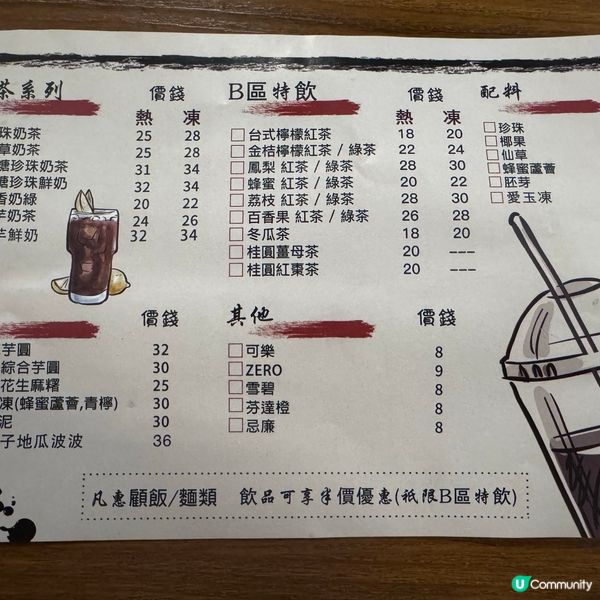 茶系列 價錢
熱 凍
珠奶茶 25 28
草奶茶 25 28
糖珍珠奶茶 31 34
糖珍珠鮮奶 32 34
香奶綠 20 22
芋奶茶 24 26
芋鮮奶 32 34
B區特飲 價錢
熱 凍
台式檸檬紅茶 18 20
金桔檸檬紅茶 / 綠茶 22 24
鳳梨 紅茶 / 綠茶 28 30
蜂蜜 紅茶 / 綠茶 20 22
荔枝 紅茶 / 綠茶 28 30
百香果 紅茶 / 綠茶 26 28
冬瓜茶 18 20
桂圓薑母茶 20 ---
桂圓紅棗茶 20 ---
配料
珍珠
椰果
仙草
蜂蜜蘆薈
胚芽
愛玉凍
價錢
芋圓 32
綜合芋圓 30
花生麻糬 25
凍(蜂蜜蘆薈,青檸) 30
泥 30
子地瓜波波 36
其他 價錢
可樂 8
ZERO 9
雪碧 8
芬達橙 8
忌廉 8
凡惠顧飯/麵類 飲品可享半價優惠(祇限B區特飲)
U Community